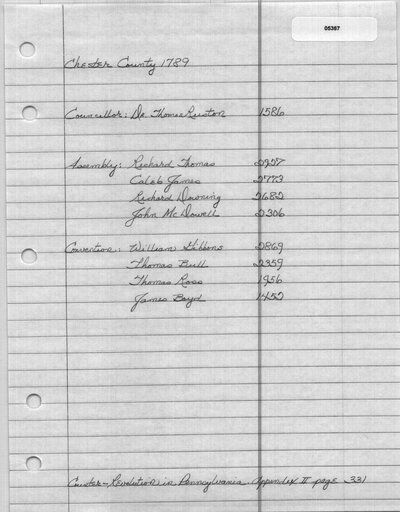 05367
Chester County 1789
Councellor: Dr. Thomas Ruston 1586
Assembly: Richard Thomas
Caleb James 2773
Richard Downing 2682
John McDowell 2306
Convention: William Gibbons 2869
Thomas Bull 2359
Thomas Ross 1956
James Boyd 1452
Revolution in Pennsylvania Appendix II page 331